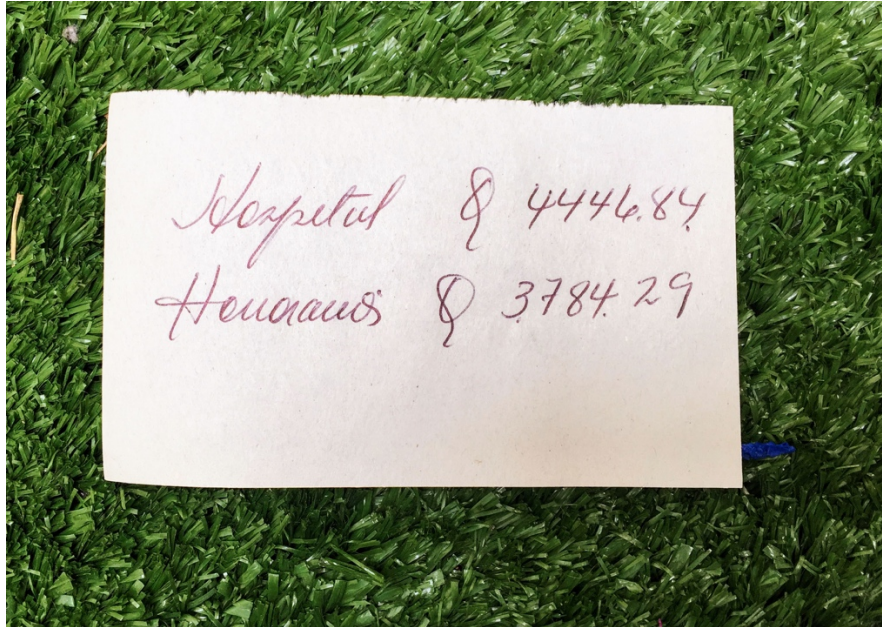 Hospital Q 4446.84
Honorarios Q 3784.29